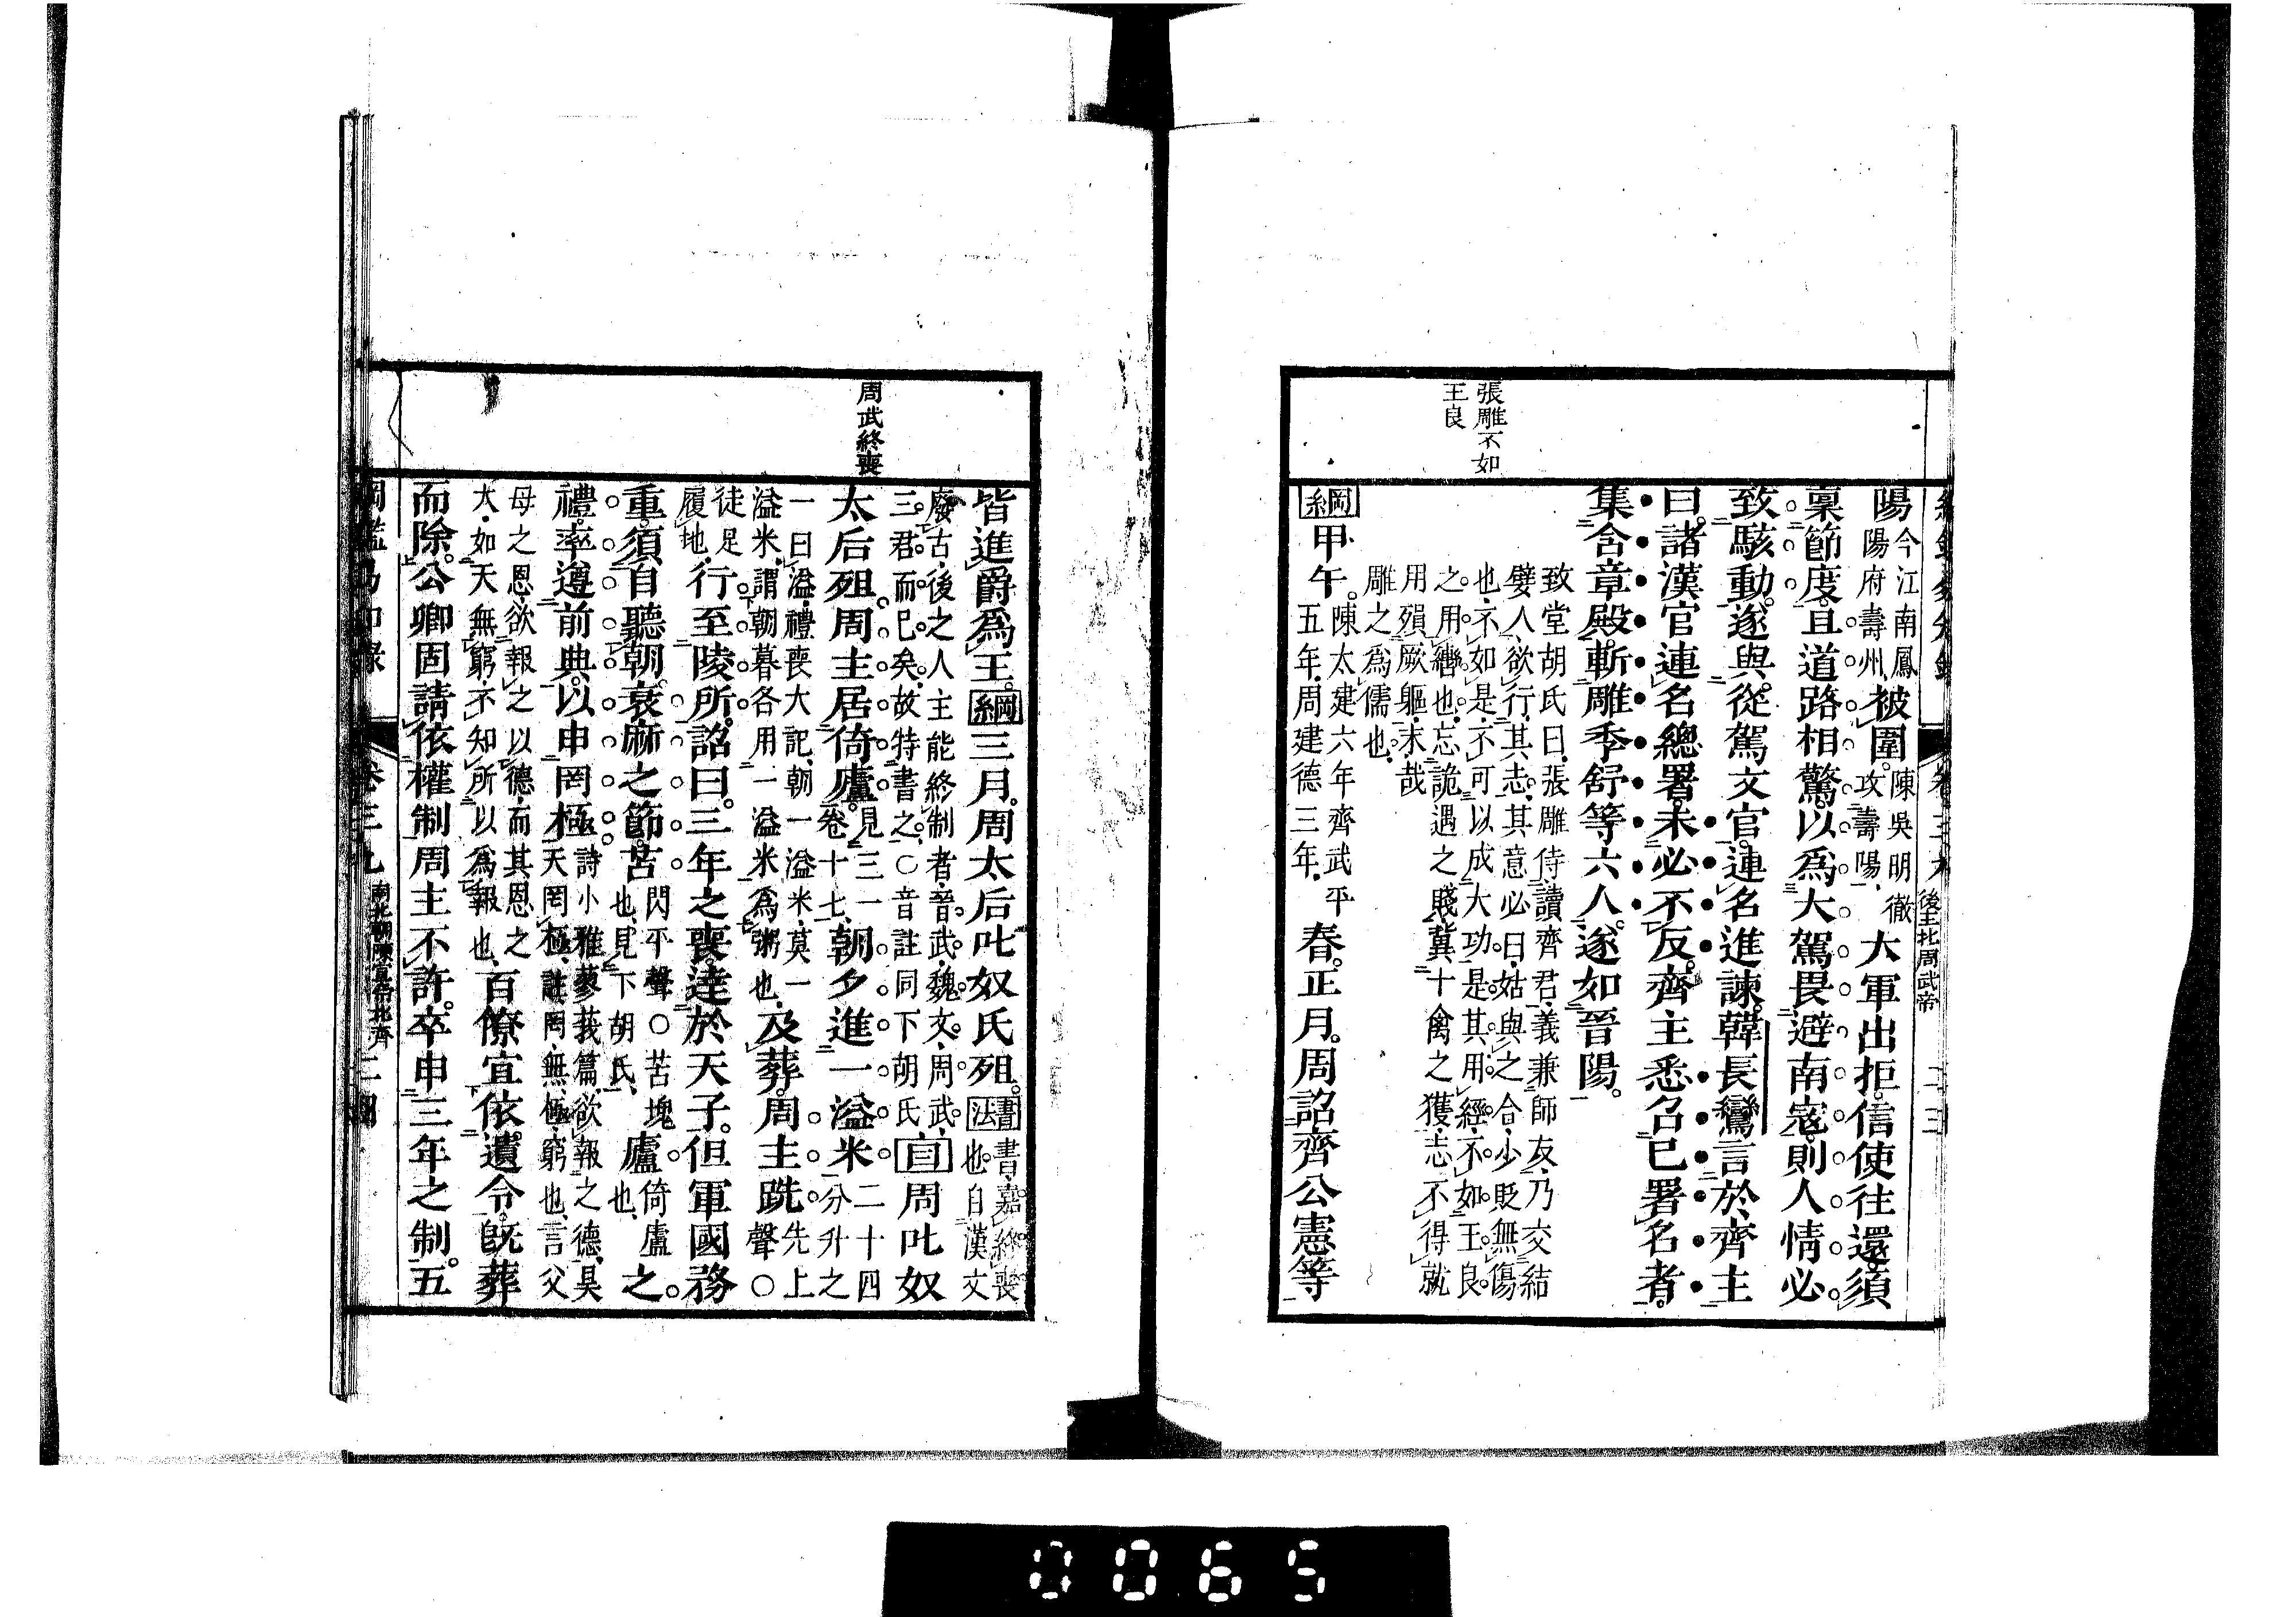 後主北周武帝 二三
張雕不如
王良
陽今江南鳳陽府壽州、被圍。陳吳明徹攻壽陽、大軍出拒。信使往還。須
稟節度。且道路相驚。以爲大駕畏避南寇。則人情必
致駭動。遂與從駕文官。連名進諫。韓長鸞言於齊主
曰。諸漢官連名總署。未必不反。齊主悉召已署名者。
集含章殿。斬雕季舒等六人。遂如晉陽。
致堂胡氏曰、張雕侍讀齊君、義兼師友、乃交結
嬖人、欲行其志、其意必曰、姑與之合、少貶無傷
也、不如是、不可以成大功、是其用經、不如王良
之用轡也、忘詭遇之賤、冀十禽之獲、志不得就
用殞厥軀、末哉
雕之爲儒也、
綱甲午。陳太建六年齊武平五年、周建德三年、春。正月。周詔齊公憲等
周武終喪
皆進爵爲王。綱三月。周太后叱奴氏殂。書法書、嘉終喪也。自漢文
廢古、後之人主能終制者、晉武、魏文、周武、
三君而已矣、故特書之、○音註同下胡氏目周叱奴
太后殂。周主居倚廬。見三一卷十七、朝夕進一溢米。二十四分升之
一曰溢、禮喪大記、朝一溢米、莫一溢米、謂朝暮各用一溢米爲粥也、及葬。周主跣先上聲○
徒足履地、行至陵所。詔曰。三年之喪。達於天子。但軍國務
重。須自聽朝。衰麻之節。苫閃平聲○苫、塊也、見下胡氏、廬倚廬也、之
禮。率遵前典。以申罔極。詩小雅蓼莪篇、欲報之德、昊天罔極、註、罔、無、極、窮也、言父
母之恩、欲報之以德、而其恩之大、如天無窮、不知所以爲報也、百僚宜依遺令。既葬
而除。公卿固請依權制。周主不許。卒申三年之制。五
綱鑑易知錄 卷三九 南北朝陳宣帝北齊
0065